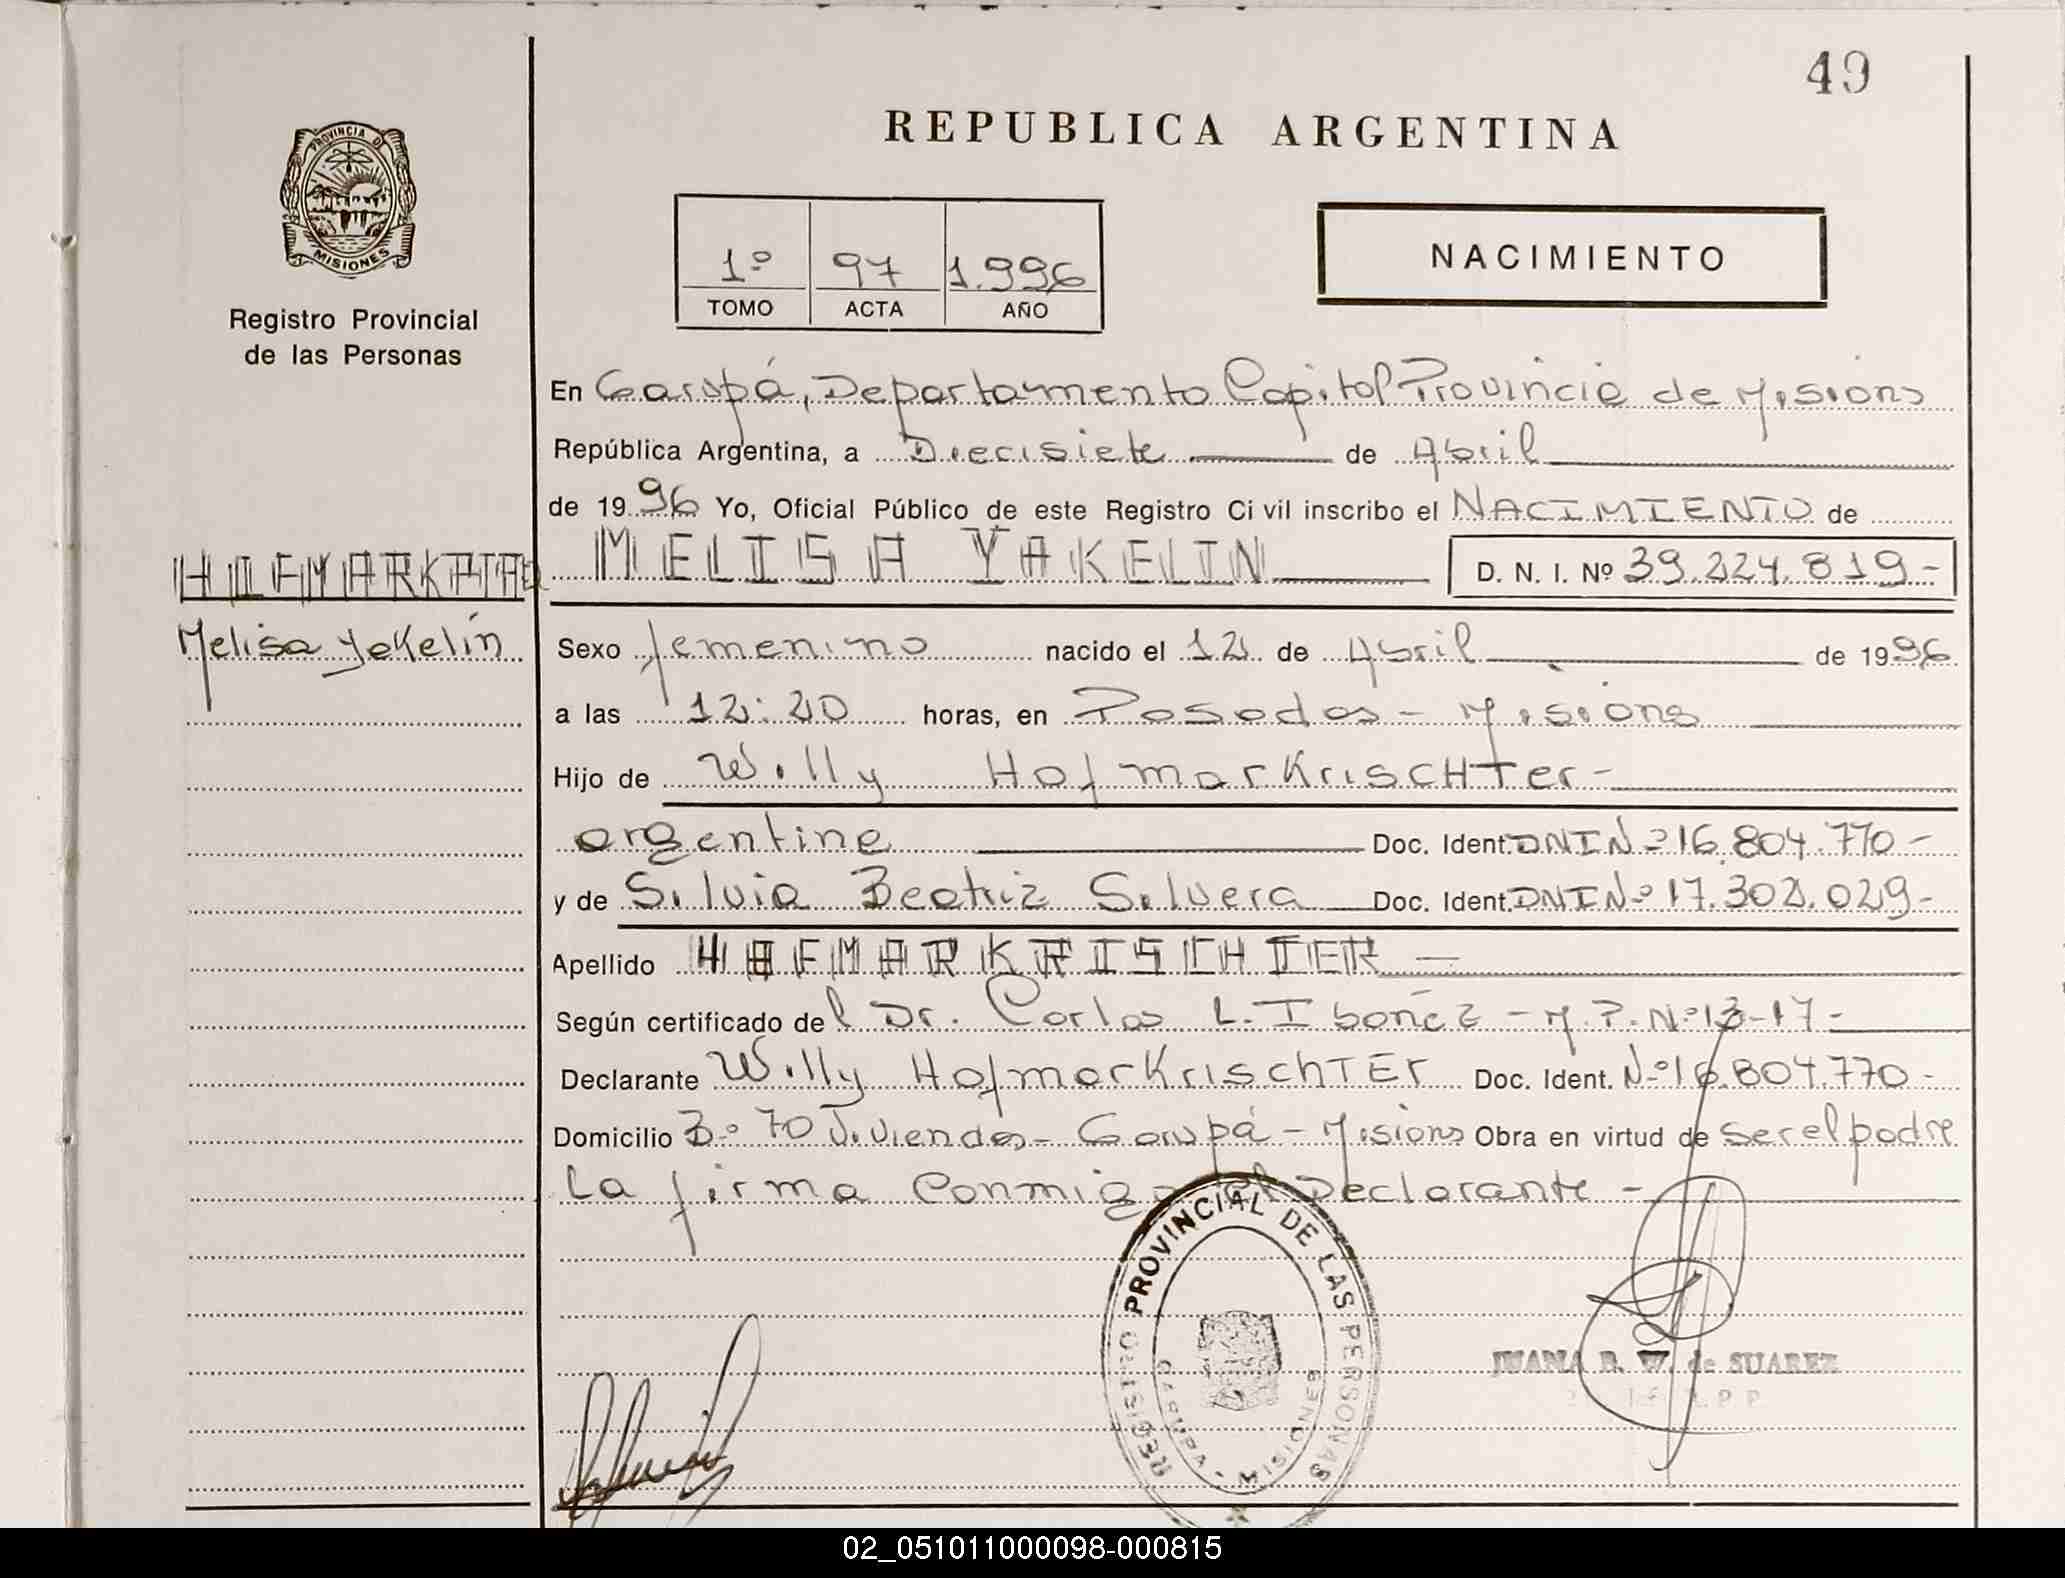 49
REPUBLICA ARGENTINA
PROVINCIA DE
MISIONES
Registro Provincial
de las Personas
1º 97 1.996
TOMO ACTA AÑO
NACIMIENTO
En Garupá, Departamento Capital Provincia de Misions
República Argentina, a Diecisiete de Abril
de 1996 Yo, Oficial Público de este Registro Civil inscribo el NACIMIENTO de
MELISA YAKELIN D. N. I. Nº 39.224.819-
Melisa Yakelin
Sexo femenino nacido el 12 de Abril de 1996
a las 12:20 horas, en Posadas - Misions
Hijo de Willy HofmarKriscHTer-
argentina Doc. Ident. DNI Nº 16.804.770-
y de Silvia Beatriz Silvera Doc. Ident. DNI Nº 17.302.029-
Apellido HOFMARKRISCHTER -
Según certificado del Dr. Carlos L. Ibañez - M.P. Nº 13-17-
Declarante Willy HofmarKrischTEr Doc. Ident. Nº 16.804.770-
Domicilio Bº 70 Viviendas - Garupá - Misions Obra en virtud de ser el padre
La firma Conmigo el Declarante -
REGISTRO PROVINCIAL DE LAS PERSONAS
GARUPA - MISIONES
JUANA R. W. de SUAREZ
02_051011000098-000815